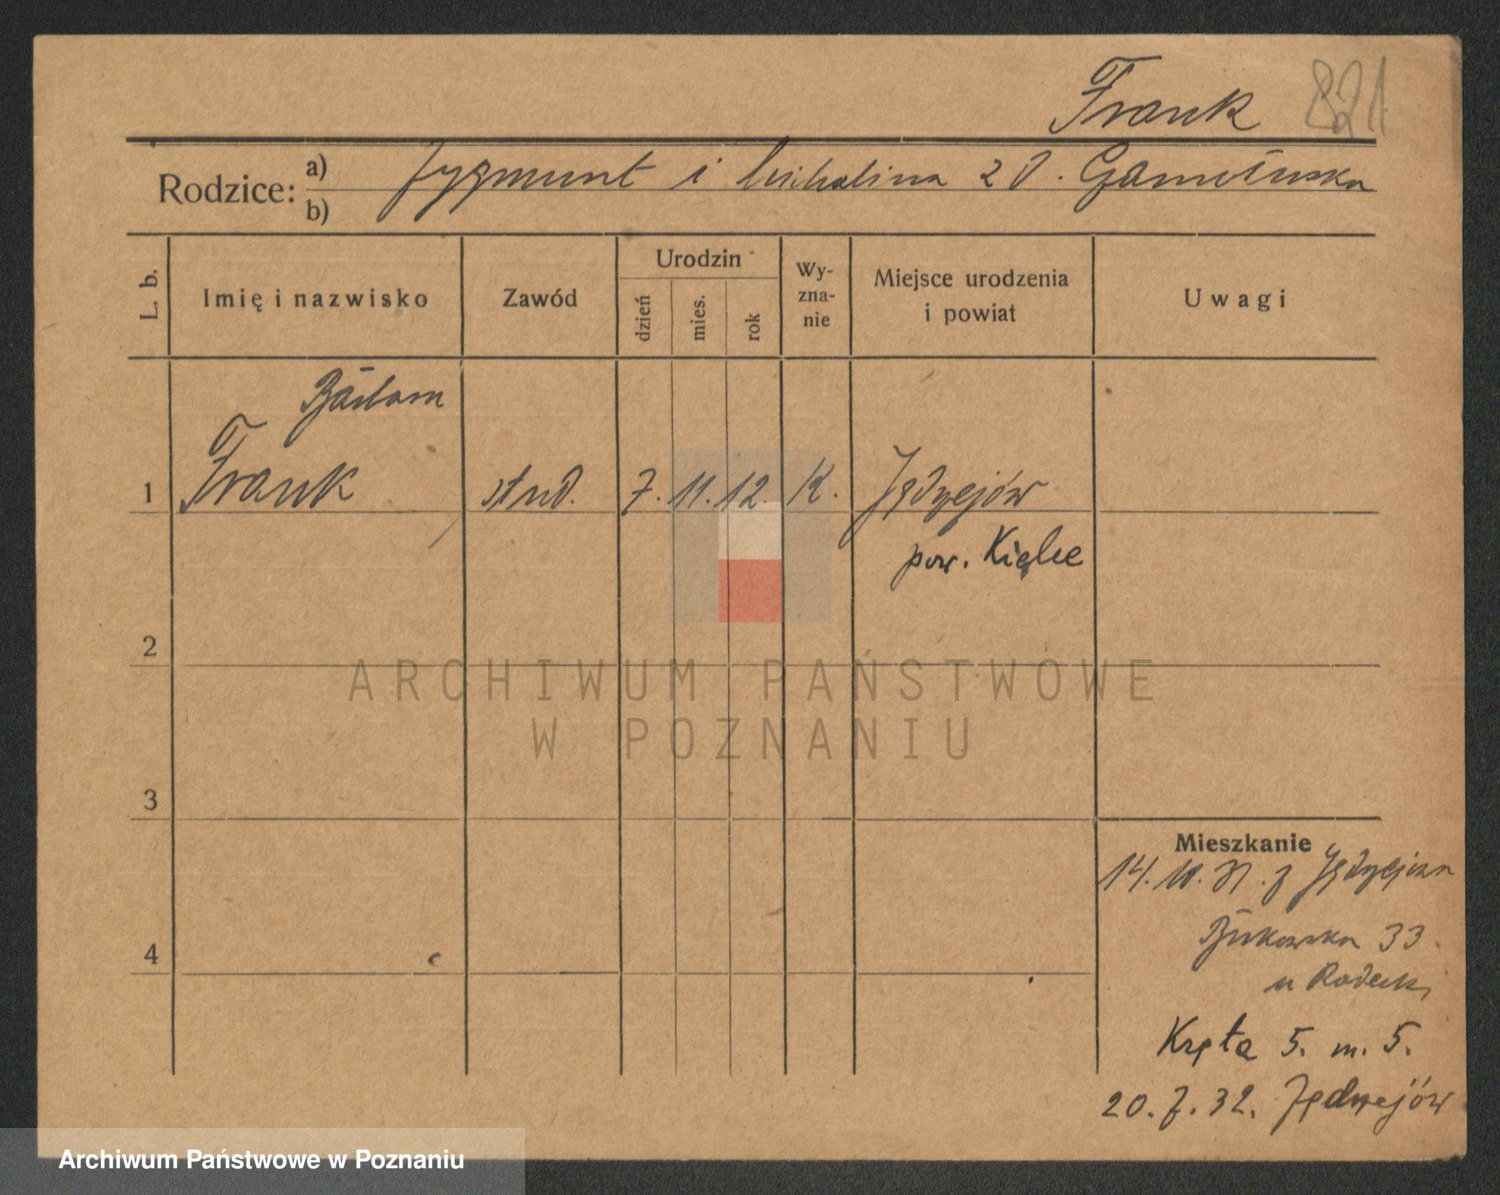 Frank 821
Rodzice: a) Zygmunt i Michalina z d.
b)
L. b. Imię i nazwisko Zawód Urodzin dzień mies. rok Wyznanie Miejsce urodzenia i powiat Uwagi
1 Frank stud. 7. 11. 12. K. Jędrzejów
pow. Kielce
2
ARCHIWUM PAŃSTWOWE
W POZNANIU
3
Mieszkanie
14. 10. 31. z Jędrzejowa
4
Bukowska 33.
u Radecki
Kręta 5. m. 5.
20. 7. 32. Jędrzejów
Archiwum Państwowe w Poznaniu